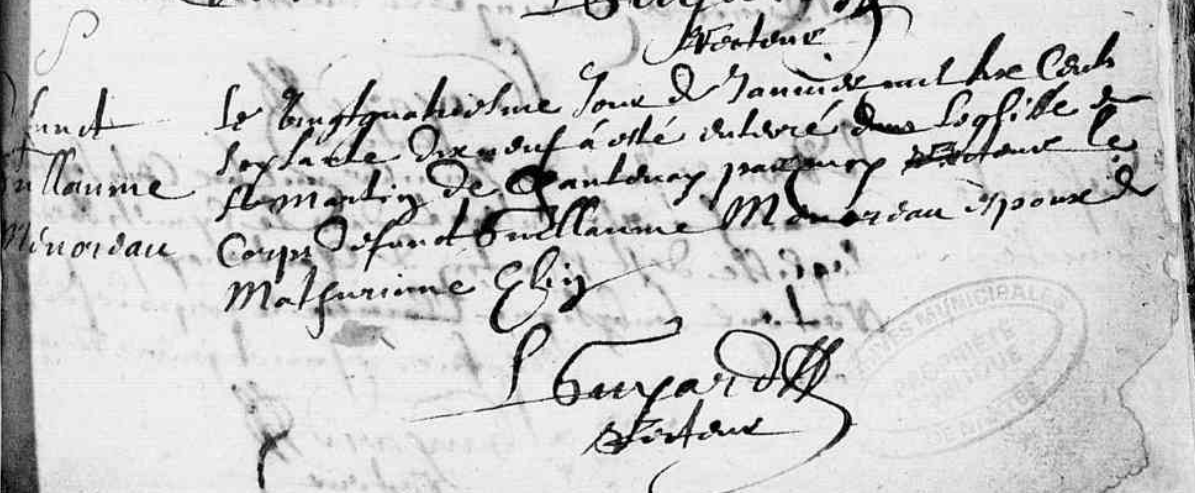 Recteur
funct
uillaume
Menoreau
Le vingtquatriesme Jour de Janvier mil six Cents
soixante dixneuf à esté enterré dans Leglisse de
St Martin de Chantenay par moy Recteur le
Corps defunct Guillaume Menoreau espoux de
Mathurinne
Recteur
ARCHIVES MUNICIPALES
PROPRIÉTÉ
PUBLIQUE
DE NANTES